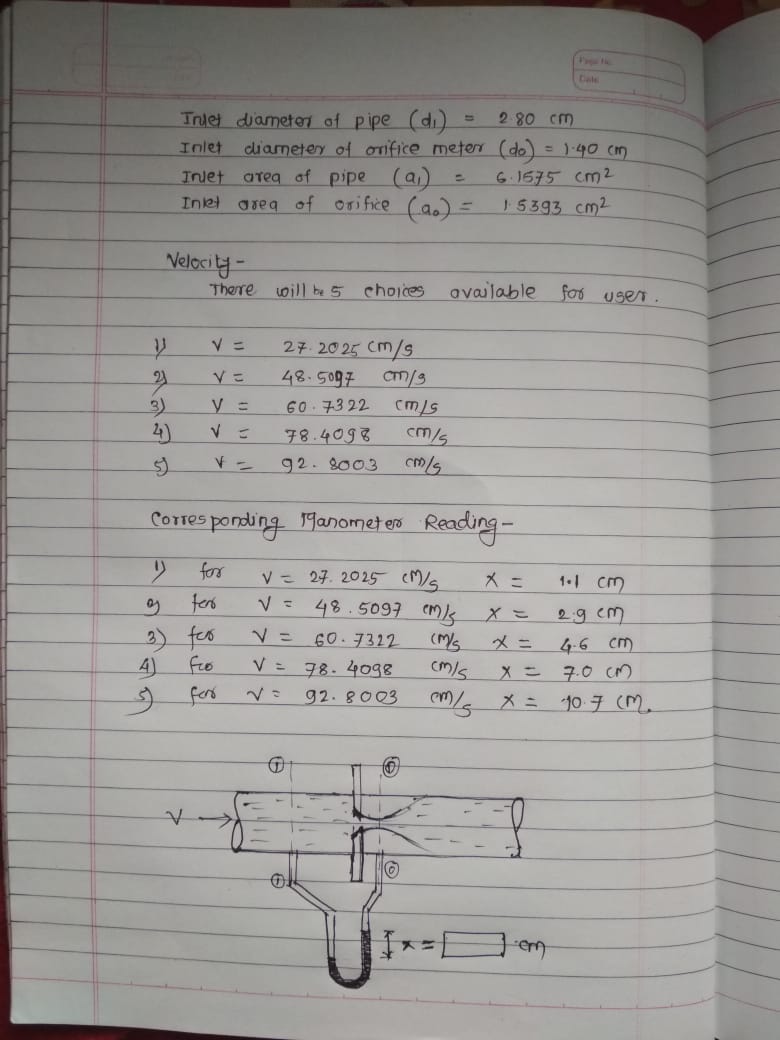 Page No.
Date
Inlet diameter of pipe (d₁) = 2.80 cm
Inlet diameter of orifice meter (do) = 1.40 cm
Inlet area of pipe (a₁) = 6.1575 cm²
Inlet area of orifice (a₀) = 1.5393 cm²
Velocity -
There will be 5 choices available for user.
1) V = 27.2025 cm/s
2) V = 48.5097 cm/s
3) V = 60.7322 cm/s
4) V = 78.4098 cm/s
5) V = 92.8003 cm/s
Corresponding Manometer Reading -
1) for V = 27.2025 cm/s x = 1.1 cm
2) for V = 48.5097 cm/s x = 2.9 cm
3) for V = 60.7322 cm/s x = 4.6 cm
4) for V = 78.4098 cm/s x = 7.0 cm
5) for V = 92.8003 cm/s x = 10.7 cm.
① ⓪
V
① ⓪
x = cm